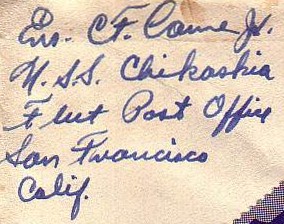 Ens. C.F. Coune Jr.
U.S.S. Chikaskia
Fleet Post Office
San Francisco
Calif.